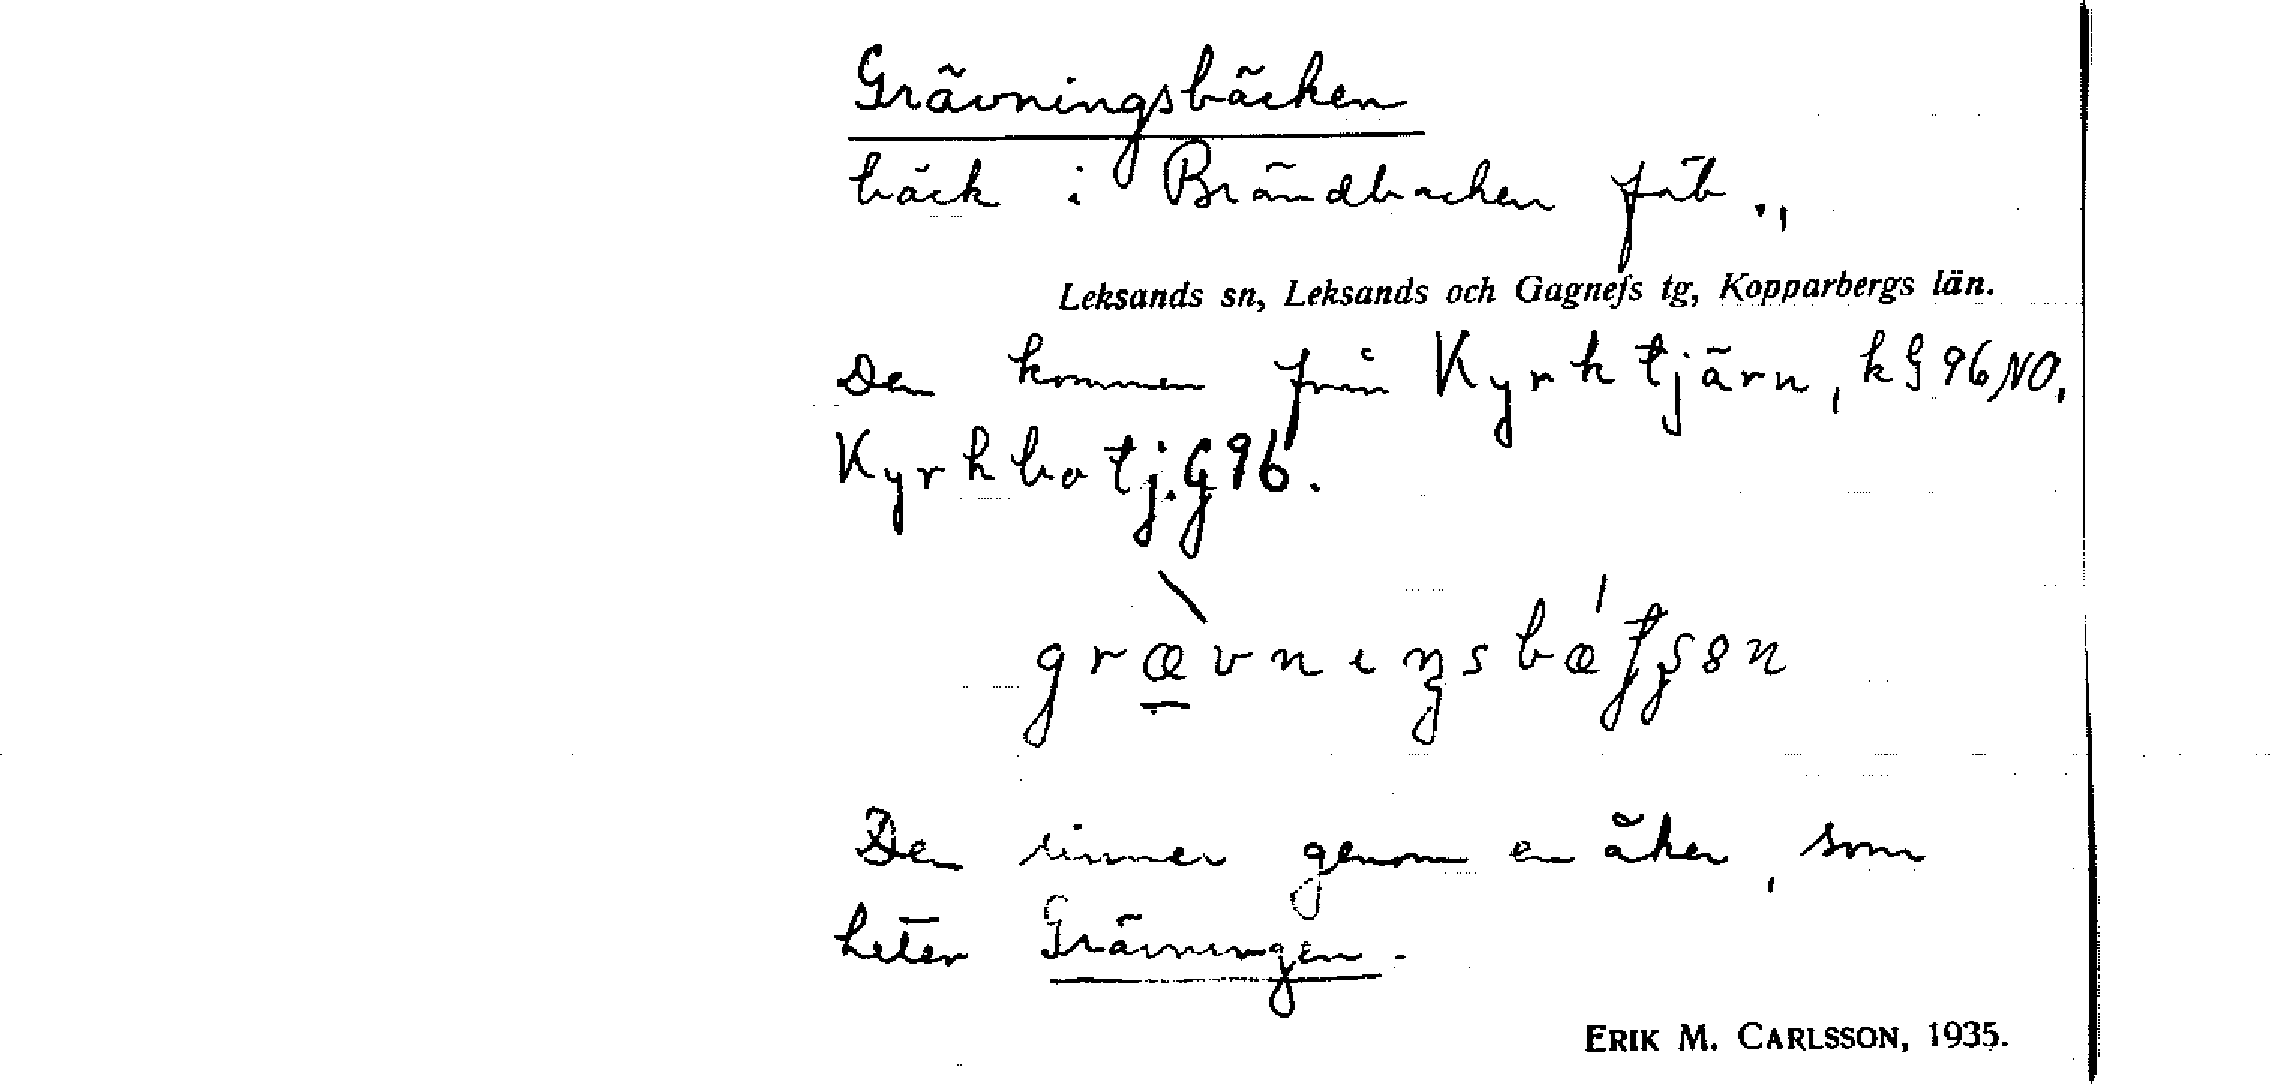 Grävningsbäcken
bäck i Brändbacken fäb.,
Leksands sn, Leksands och Gagnefs tg, Kopparbergs län.
Den kommer från Kyrktjärn, k§ 96 NO,
Kyrkbotj. G 96.
Den rinner genom en åker, som
heter Grävningen.
ERIK M. CARLSSON, 1935.